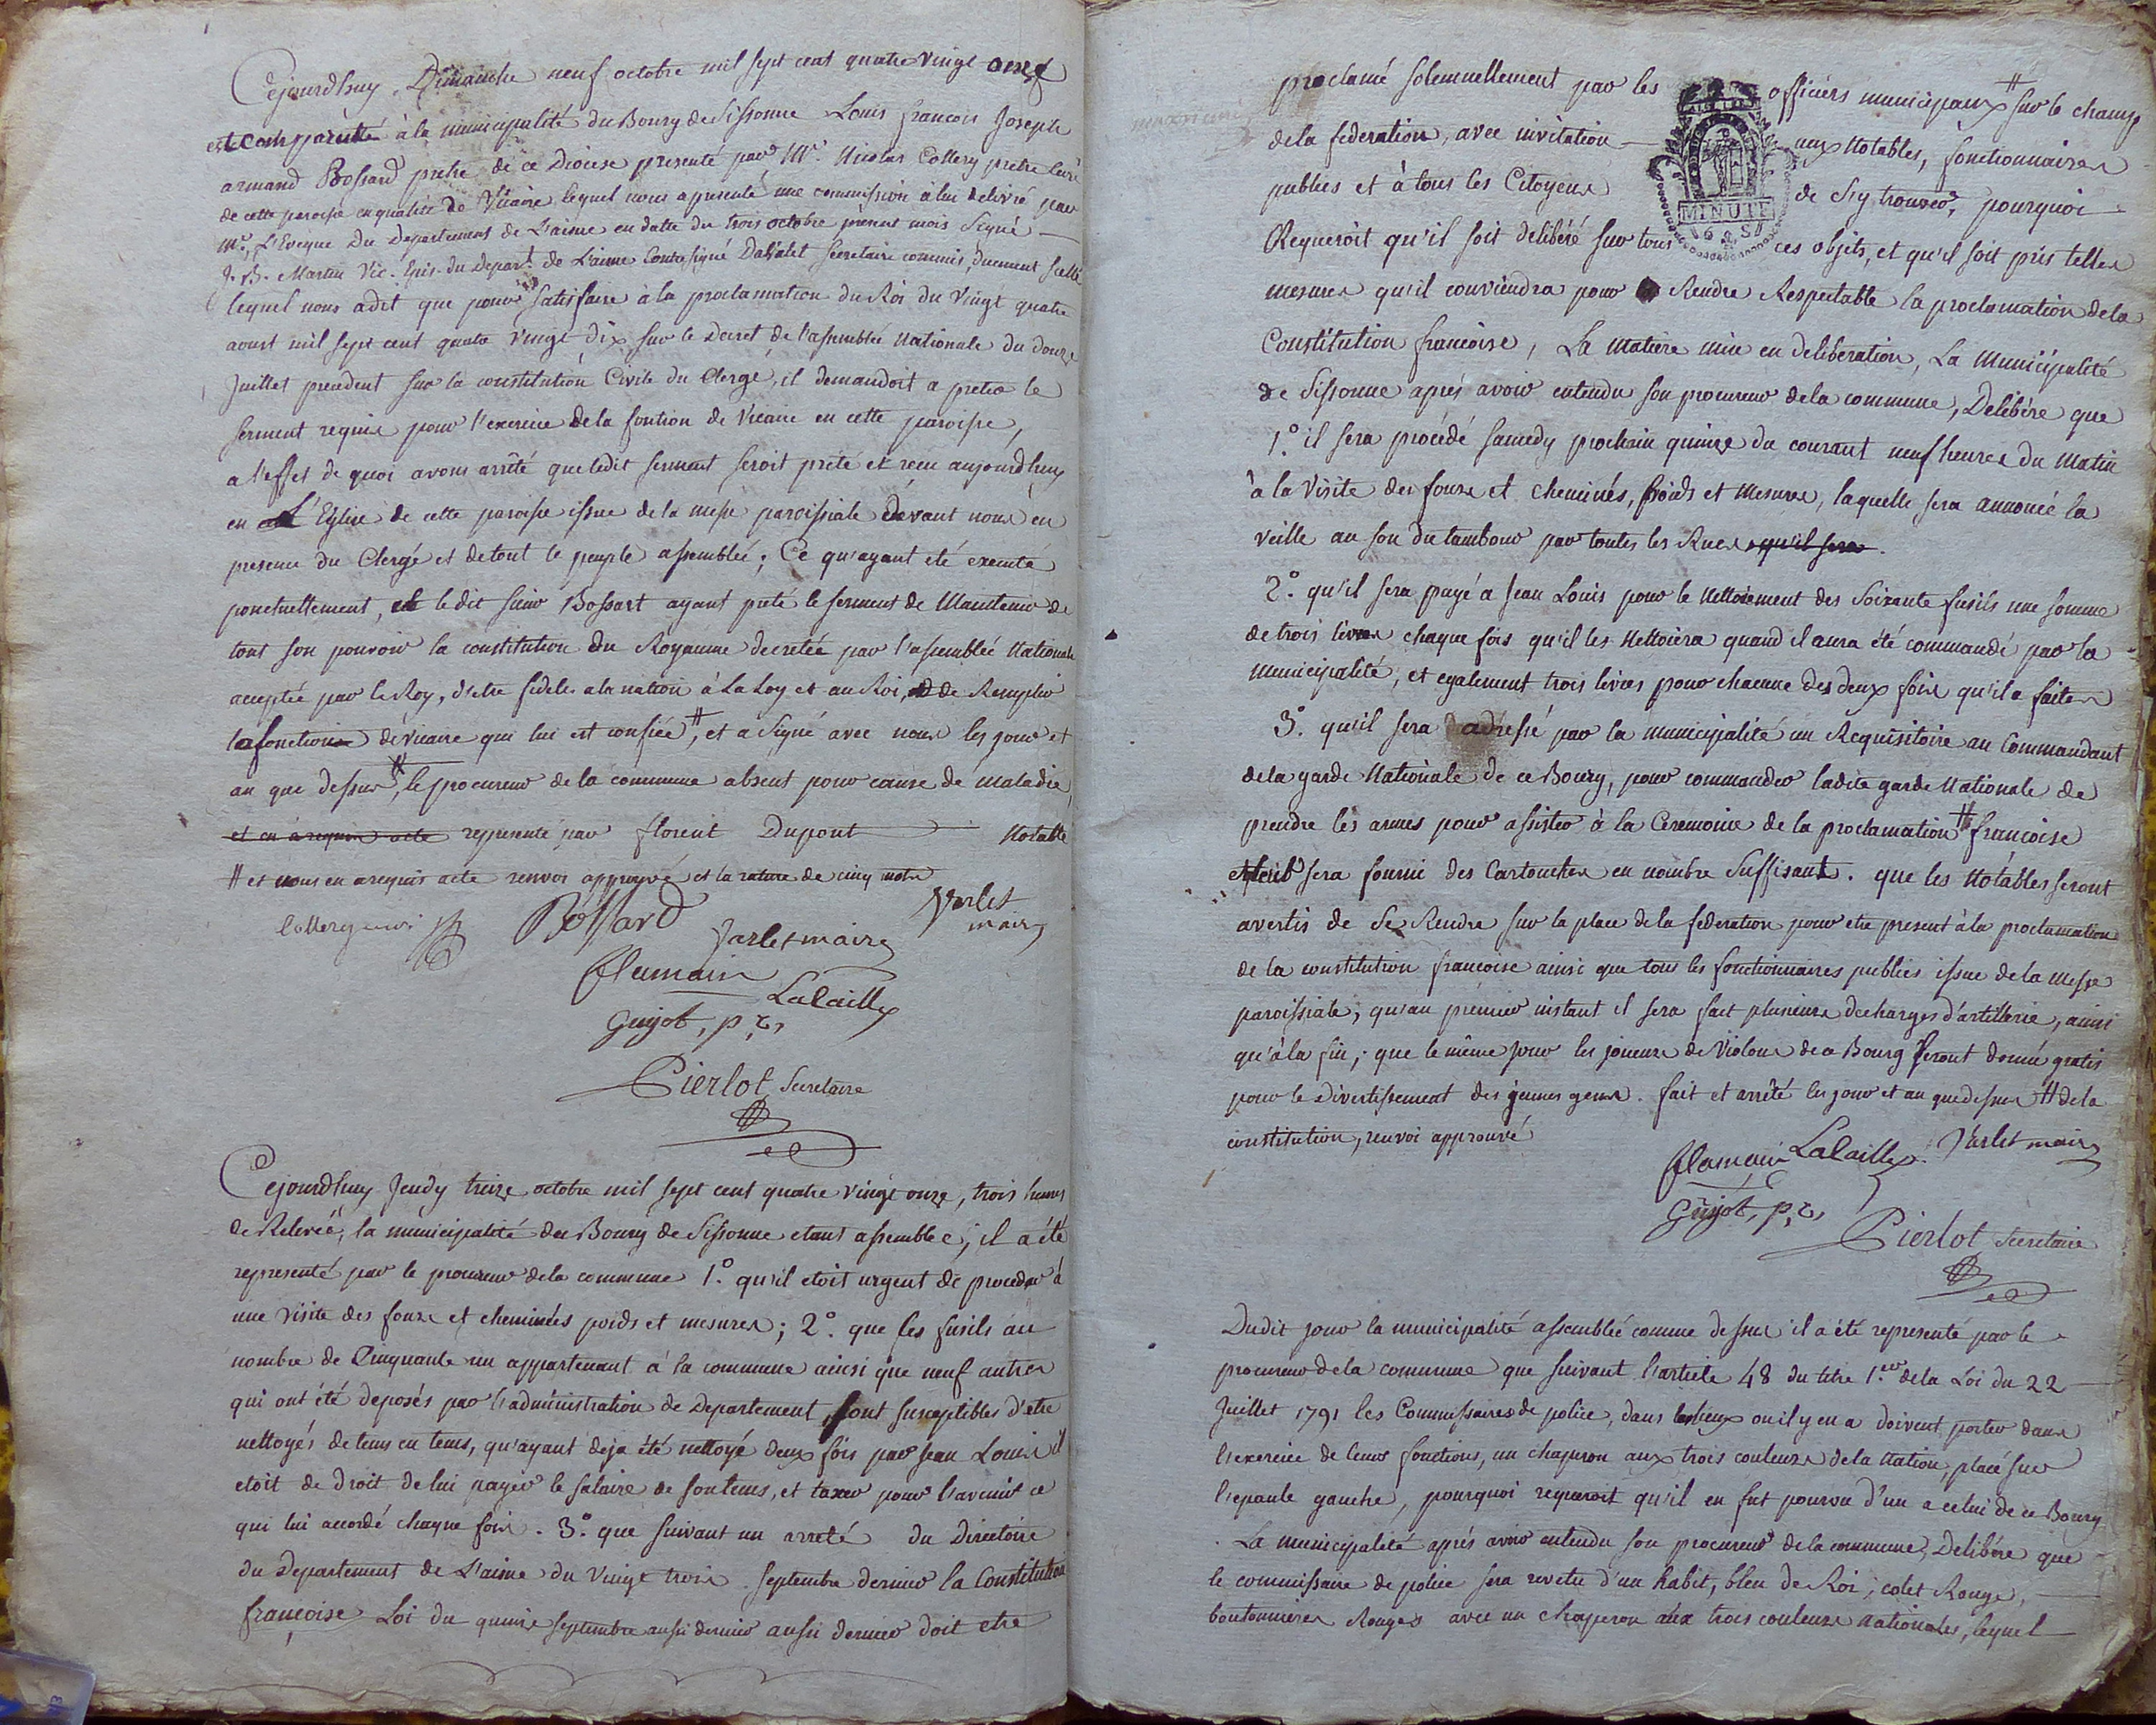 Cejourdhuy Dimanche neuf octobre mil sept cent quatre vingt onze
est comparuté à la municipalité du Bourg de Sissonne Louis francois Joseph
armand Bossard pretre de ce Diocese presenté par Mr. Nicolas Collery pretre Curé
de cette paroisse en qualité de Vicaire lequel nous a presenté une commission à lui delivré par
Mr. L'Eveque Du Departement de L'aisne en datte du trois octobre présent mois Signé —
J. B. Martin Vic. Epis. du Depart. de L'aisne Contresigné Dabalet Secretaire commis, duement scellé
lequel nous a dit que pour satisfaire à la proclamation du Roi du Vingt quatre
aoust mil sept cent quatre vingt dix sur le Decret de l'assemblée Nationale du douze
Juillet precedent sur la constitution Civile du Clergé, il demandoit a preter le
serment requis pour l'exercice de la fontion de Vicaire en cette paroisse,
a l'effet de quoi avons arrêté que ledit serment seroit prété et recu aujourdhuy
en L'Eglise de cette paroisse issue de la messe paroissiale devant nous en
presence du Clergé et de tout le peuple assemblée; Ce qu'ayant eté executé
ponctuellement, et le dit sieur Bossart ayant preté le serment de Maintenir de
tout son pouvoir la constitution du Royaume decretée par l'assemblée Nationale
acceptée par le Roy, d'etre fidele a la nation à La Loy et au Roi, et de Remplir
la fonction de vicaire qui lui est confiée #, et a Signé avec nous les jour et
an que dessus #, le procureur de la commune absent pour cause de maladie,
et en a requis acte representé par florent Dupont — Notable
# et nous en a requis acte renvoi approuvé et la rature de cinq mots
Collery curé Bossard Varlet maire
Varlet maire
flamain
Lalaille
Guyot, p. c.
Pierlot Secretaire
Cejourdhuy Jeudy treize octobre mil sept cent quatre vingt onze, trois heures
de Relevée, la municipalité du Bourg de Sissonne etant assemblée; il a été
representé par le procureur de la commune 1.° qu'il etoit urgent de proceder à
une visite des fours et cheminées poids et mesures; 2.° que les fusils au
nombre de Cinquante un appartenant à la commune ainsi que neuf autres
qui ont été deposés par l'administration de Departement, sont susceptibles d'etre
nettoyés de tems en tems, qu'ayant deja été nettoyé deux fois par Jean Louis il
etoit de droit de lui payer le salaire de son tems, et taxer pour l'avenir ce
qui lui accordé chaque fois. 3.° que suivant un arreté du Directoire
du Departement de L'aisne du Vingt trois septembre dernier la Constitution
françoise Loi du quinze septembre aussi dernier aussi dernier doit etre
proclamé solemnellement par les officiers municipaux # sur le champ
de la federation, avec invitation — aux Notables, fonctionnaires
publics et à tous les Citoyens de S'y trouver, pourquoi
MINUTE
6 S
Requeroit qu'il soit deliberé sur tous ces objets, et qu'il soit pris telles
mesures qu'il conviendra pour Rendre Respectable la proclamation de la
Constitution francoise, La Matiere mise en deliberation, La Municipalité
de Sissonne aprés avoir entendu son procureur de la commune, Delibére que
1.° il sera procédé samedy prochain quinze du courant neuf heures du Matin
à la Visite des fours et cheminés, poids et Mesures, laquelle sera annoncé la
veille au son du tambour par toutes les Rues qu'il sera.
2.° qu'il sera payé a Jean Louis pour le Nettoiement des Soixante fusils une somme
de trois livres chaque fois qu'il les Nettoiera quand il aura été commandé par la
Municipalité, et egalement trois livres pour chacune des deux fois qu'il a faites
3.° qu'il sera adressé par la municipalité un Requisitoire au Commandant
de la garde Nationale de ce Bourg, pour commander ladite garde Nationale de
prendre les armes pour assister à la Ceremonie de la proclamation # francoise
sera fourni des Cartouches en nombre Suffisant. que les Notables seront
avertis de Se Rendre sur la place de la federation pour etre present à la proclamation
de la constitution francoise ainsi que tous les fonctionnaires publics issue de la Messe
paroissiale, qu'au premier instant il sera fait plusieurs decharges d'artillerie, ainsi
qu'à la fin; que le même jour les joueurs de Violons de ce Bourg seront donné gratis
pour le Divertissement des jeunes gens. fait et arrété les jour et an que dessus # de la
constitution, renvoi approuvé
flamain Lalaille Varlet maire
Guyot, p. c.
Pierlot Secretaire
Dudit jour la municipalité assemblée comme dessus il a été representé par le
procureur de la commune que suivant l'article 48 du titre 1.er de la Loi du 22
Juillet 1791 les Commissaires de police, dans les lieux ou il y en a doivent porter dans
l'exercice de leurs fonctions, un chaperon aux trois couleurs de la Nation, placé sur
l'epaule gauche, pourquoi requeroit qu'il en fut pourvu d'un a celui de ce Bourg
La municipalité aprés avoir entendu son procureur de la commune, Delibére que
le commissaire de police sera revetu d'un habit, bleu de Roi, colet Rouge,
boutonnieres Rouges avec un chaperon aux trois couleurs nationales, lequel